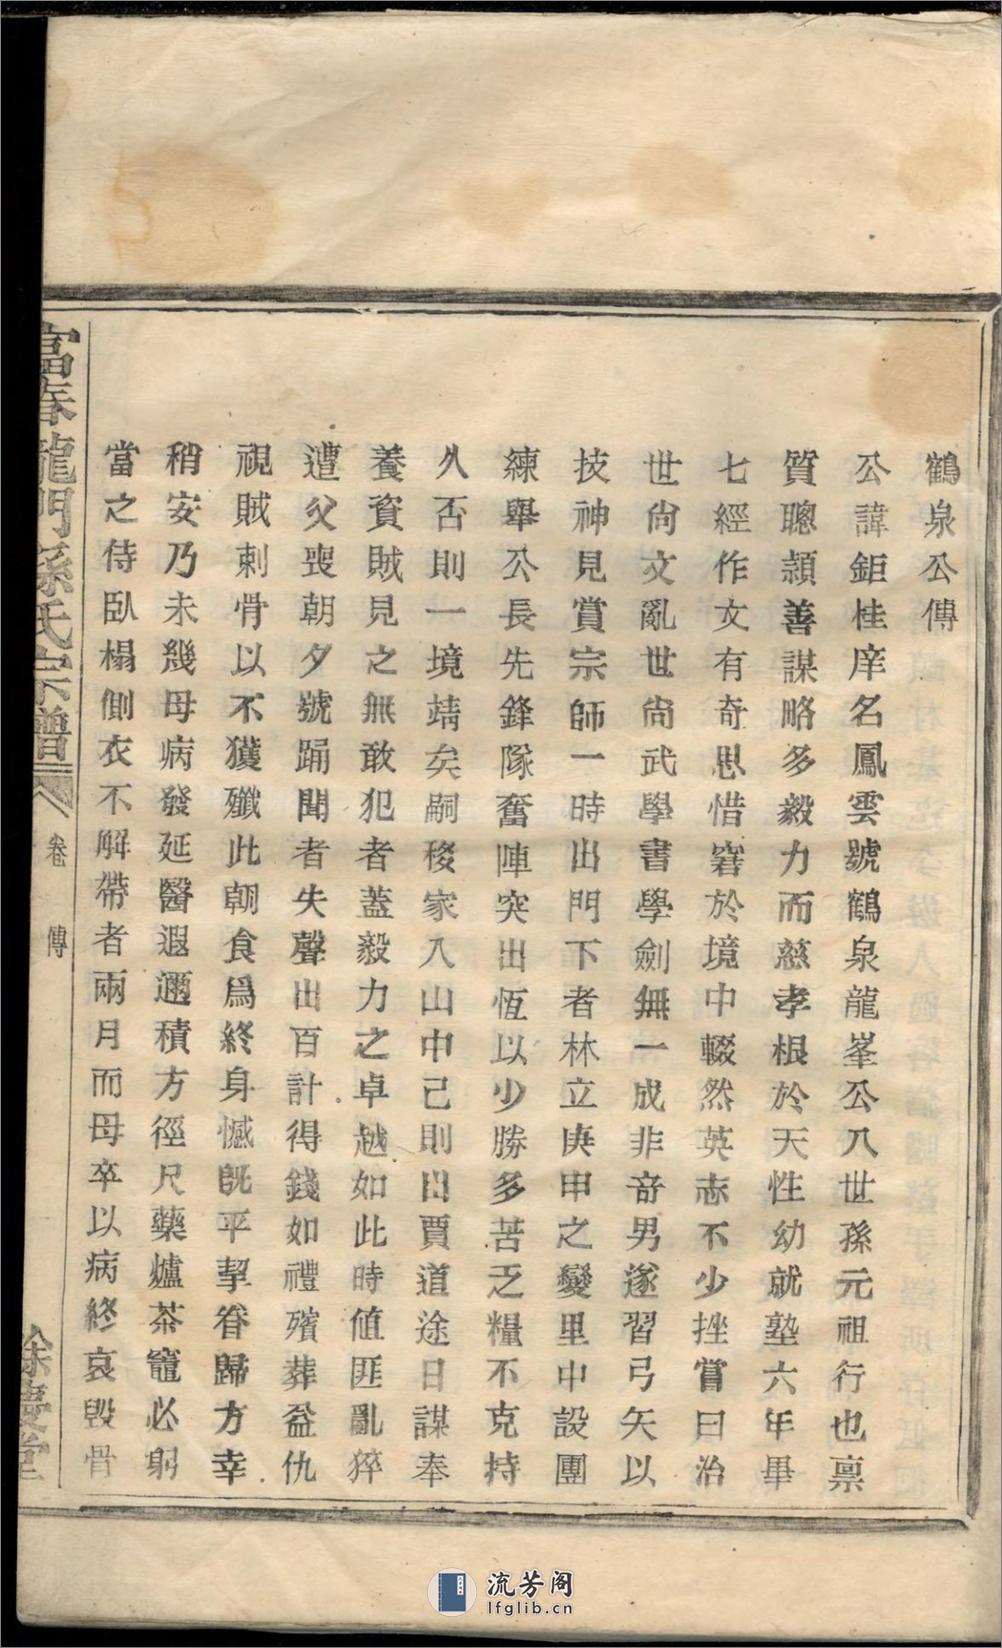 鶴泉公傳
公諱鉅桂庠名鳳雲號鶴泉龍峯公八世孫元祖行也禀
質聰頴善謀略多毅力而慈孝根於天性幼就塾六年畢
七經作文有奇思惜窘於境中輟然英志不少挫嘗曰治
世尙文亂世尙武學書學劍無一成非奇男遂習弓矢以
技神見賞宗師一時出門下者林立庚申之變里中設團
練舉公長先鋒隊奮陣突出恆以少勝多苦乏糧不克持
久否則一境靖矣嗣移家入山中己則出賈道途日謀奉
養資賊見之無敢犯者蓋毅力之卓越如此時值匪亂猝
遭父喪朝夕號踊聞者失聲出百計得錢如禮殯葬益仇
視賊刺骨以不獲殲此朝食爲終身憾旣平挈眷歸方幸
稍安乃未幾母病發延醫遐邇積方徑尺藥爐茶竈必躬
當之侍臥榻側衣不解帶者兩月而母卒以病終哀毀骨
富春龍門孫氏宗譜
卷 傳
餘慶堂
流芳阁
lfglib.cn